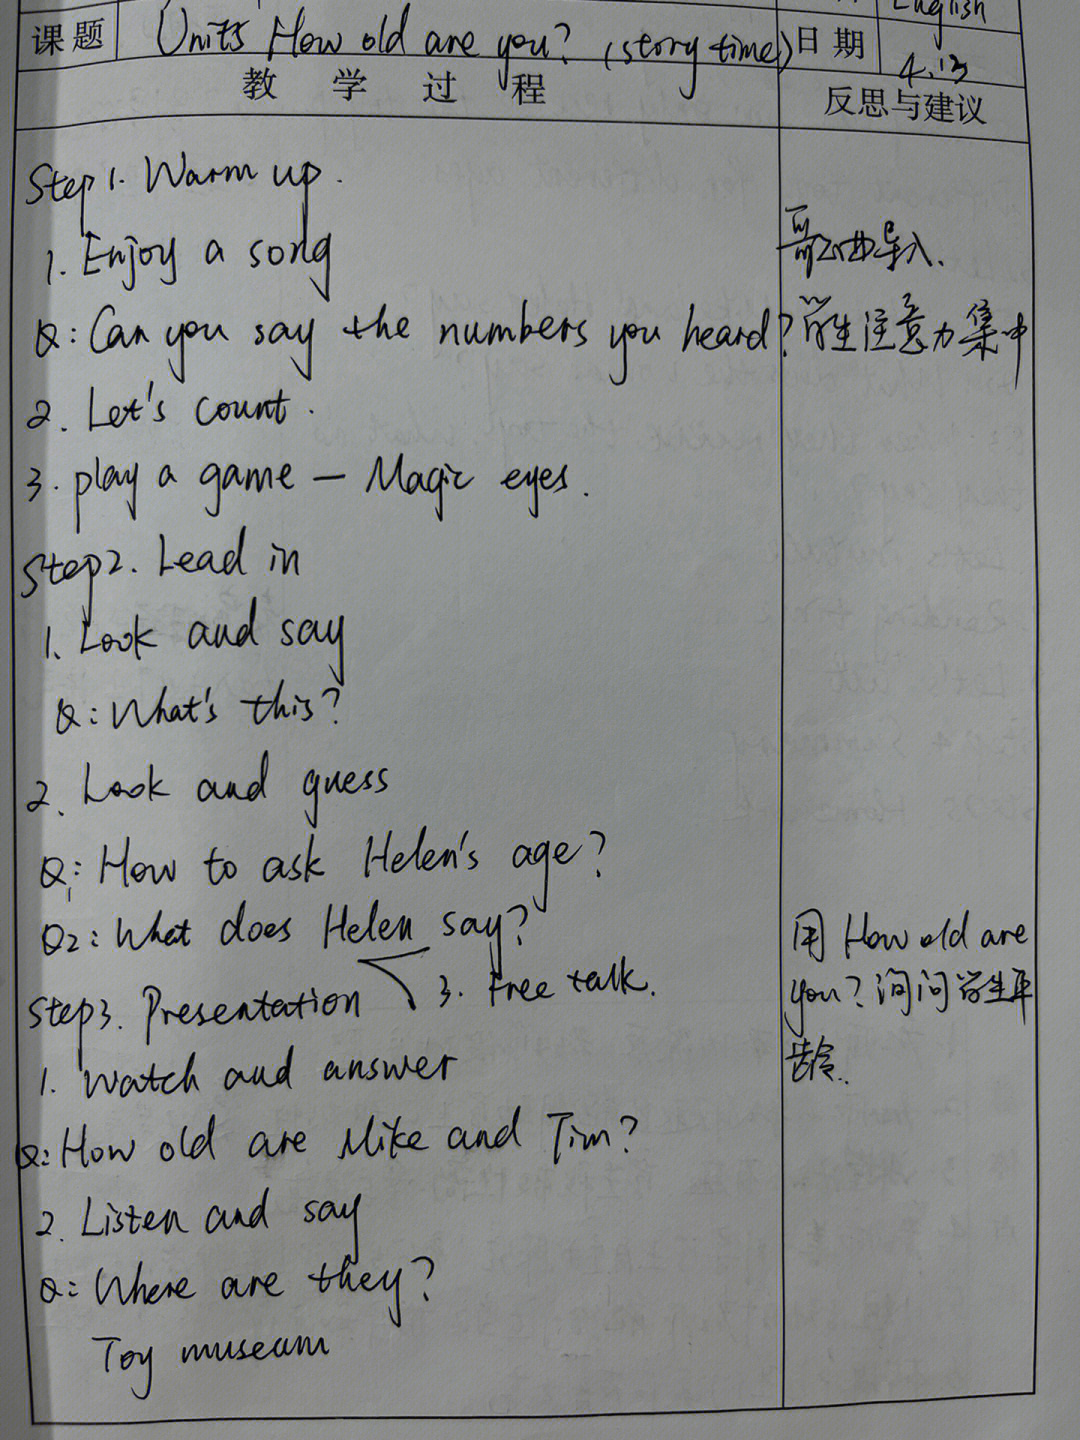 English
课题 Unit5 How old are you? (story time) 日期 4.13
教学过程 反思与建议
Step 1. Warm up.
1. Enjoy a song
歌曲导入.
Q: Can you say the numbers you heard?
学生注意力集中
2. Let's count.
3. play a game — Magic eyes.
Step2. Lead in
1. Look and say
Q: What's this?
2. Look and guess
Q1: How to ask Helen's age?
Q2: What does Helen say?
3. Free talk.
用 How old are
you? 询问学生年
龄.
Step3. Presentation
1. Watch and answer
Q: How old are Mike and Tim?
2. Listen and say
Q: Where are they?
Toy museum